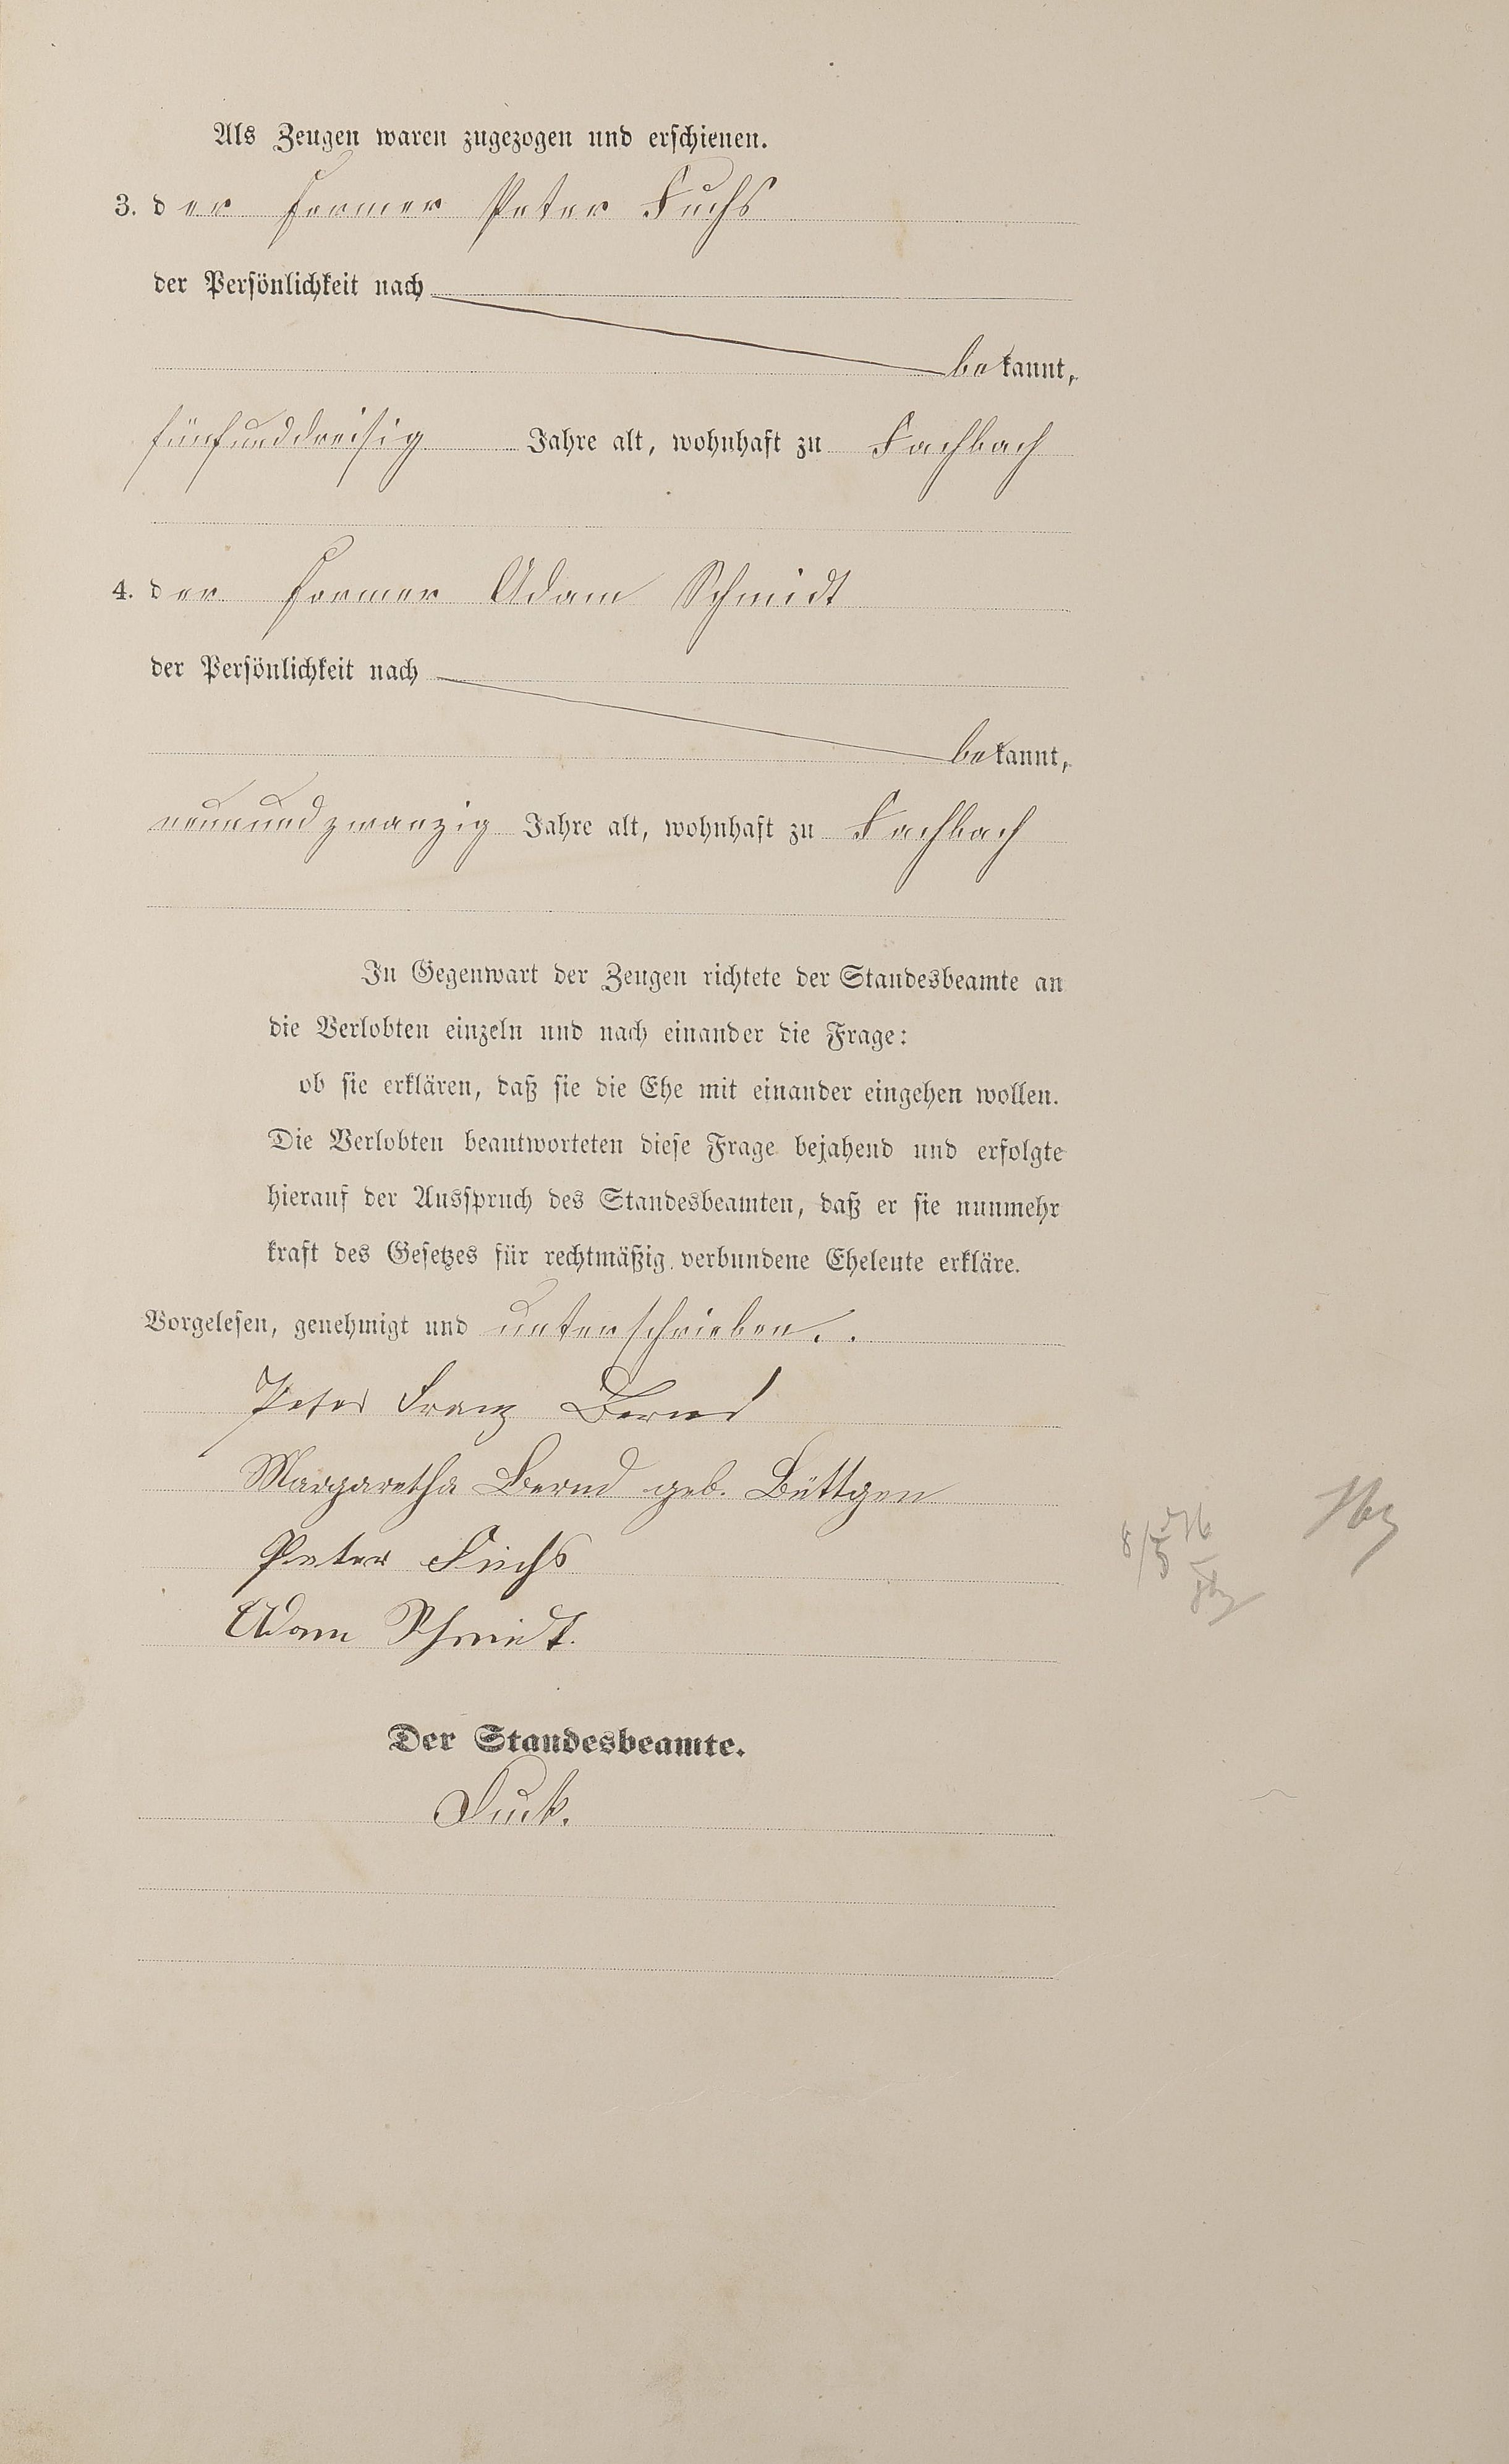 Als Zeugen waren zugezogen und erschienen.
3. der Former Peter Fuchs
der Persönlichkeit nach
bekannt,
fünfunddreisig Jahre alt, wohnhaft zu Fachbach
4. der Former Adam Schmidt
der Persönlichkeit nach
bekannt,
neunundzwanzig Jahre alt, wohnhaft zu Fachbach
In Gegenwart der Zeugen richtete der Standesbeamte an
die Verlobten einzeln und nach einander die Frage:
ob sie erklären, daß sie die Ehe mit einander eingehen wollen.
Die Verlobten beantworteten diese Frage bejahend und erfolgte
hierauf der Ausspruch des Standesbeamten, daß er sie nunmehr
kraft des Gesetzes für rechtmäßig verbundene Eheleute erkläre.
Vorgelesen, genehmigt und unterschrieben.
Peter Franz Bernd
Margaretha Bernd geb. Büttgen
Peter Fuchs
Adam Schmidt.
Der Standesbeamte.